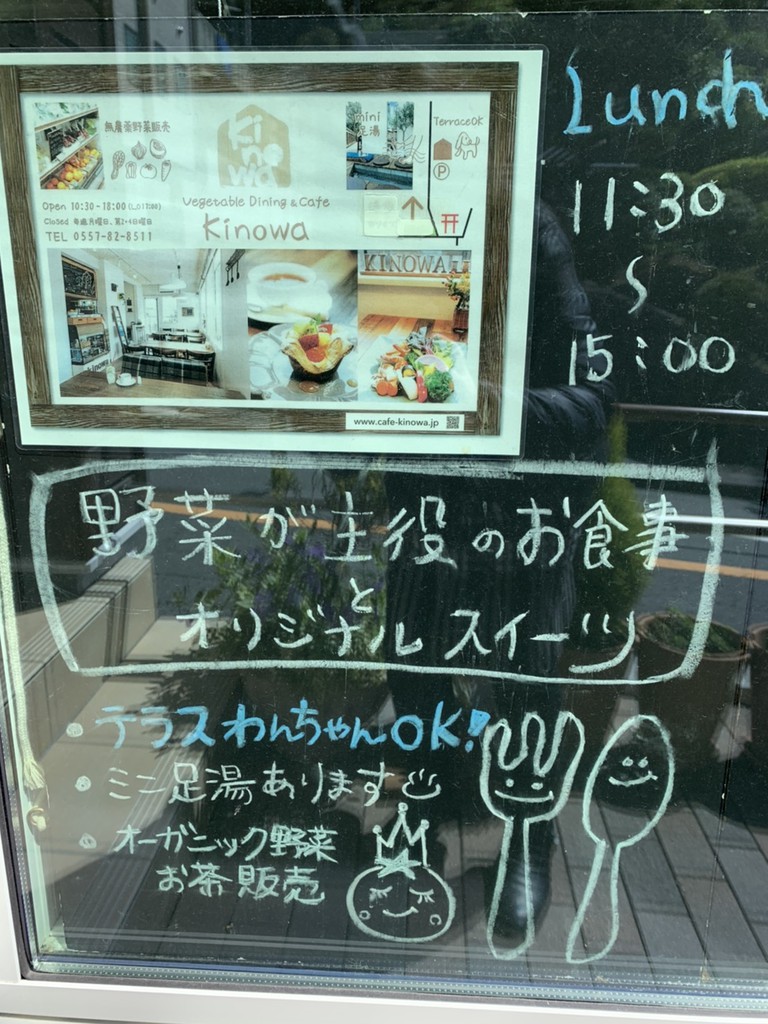 無農薬野菜販売
Kinowa
mini
足湯
TerraceOK
P
Open 10:30-18:00 (L.O17:00)
Closed 毎週月曜日、第2・4日曜日
TEL 0557-82-8511
Vegetable Dining & Cafe
Kinowa
KINOWA
kinowa
www.cafe-kinowa.jp
Lunch
11:30
〜
15:00
野菜が主役のお食事
と
オリジナルスイーツ
・テラスわんちゃんOK!
・ミニ足湯あります♨
・オーガニック野菜
お茶販売